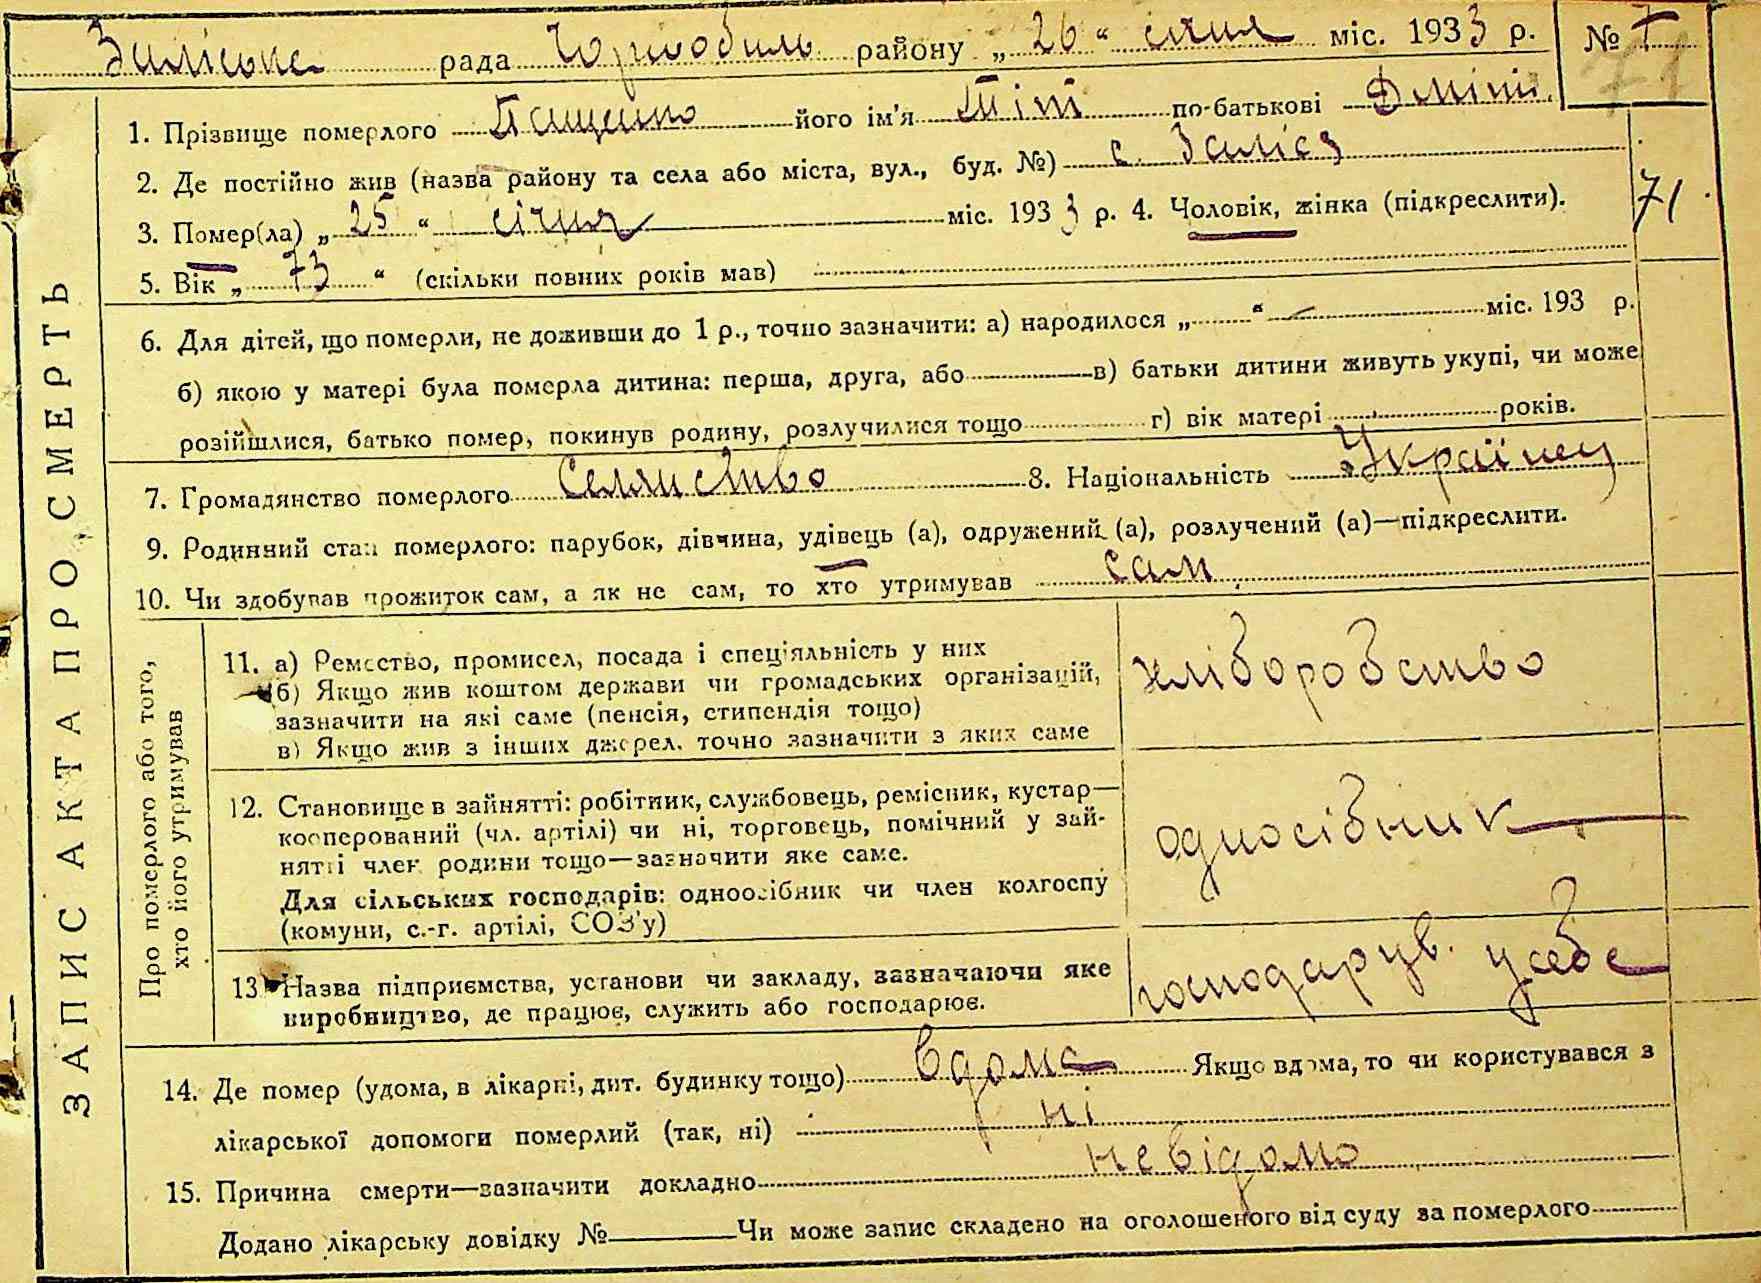 Заліська рада Чорнобиль району „ 26 “ січня міс. 1933 р. № 7
71
1. Прізвище померлого Пащенко його ім'я Тіт по-батькові Дміт.
2. Де постійно жив (назва району та села або міста, вул., буд. №) с. Заліся
3. Помер(ла) „ 25 “ січня міс. 1933 р. 4. Чоловік, жінка (підкреслити).
71
5. Вік „ 73 “ (скільки повних років мав)
6. Для дітей, що померли, не доживши до 1 р., точно зазначити: а) народилося „ “ міс. 193 р.
б) якою у матері була померла дитина: перша, друга, або в) батьки дитини живуть укупі, чи може
розійшлися, батько помер, покинув родину, розлучилися тощо г) вік матері років.
7. Громадянство померлого Селянство 8. Національність Українец
9. Родинний стан померлого: парубок, дівчина, удівець (а), одружений (а), розлучений (а)—підкреслити.
10. Чи здобував прожиток сам, а як не сам, то хто утримував сам
ЗАПИС АКТА ПРО СМЕРТЬ
Про померлого або того,
хто його утримував
11. а) Ремество, промисел, посада і спеціяльність у них
б) Якщо жив коштом держави чи громадських організацій,
зазначити на які саме (пенсія, стипендія тощо)
в) Якщо жив з інших джерел, точно зазначити з яких саме
хліборобство
12. Становище в зайнятті: робітник, службовець, ремісник, кустар—
кооперований (чл. артілі) чи ні, торговець, помічний у зай-
нятті член родини тощо—зазначити яке саме.
Для сільських господарів: одноосібник чи член колгоспу
(комуни, с.-г. артілі, СОЗ'у)
односібник
13. Назва підприємства, установи чи закладу, зазначаючи яке
виробництво, де працює, служить або господарює.
господарив. у себе
14. Де помер (удома, в лікарні, дит. будинку тощо) вдома Якщо вдома, то чи користувався з
лікарської допомоги померлий (так, ні) ні
15. Причина смерти—зазначити докладно невідомо
Додано лікарську довідку № Чи може запис складено на оголошеного від суду за померлого